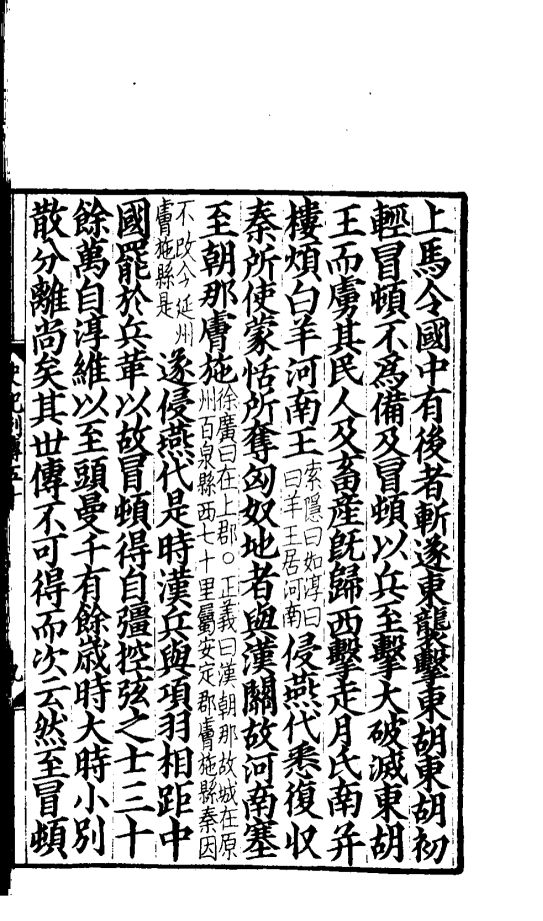 上馬令國中有後者斬遂東襲擊東胡東胡初
輕冒頓不爲備及冒頓以兵至擊大破滅東胡
王而虜其民人及畜産旣歸西擊走月氏南并
樓煩白羊河南王索隱曰如淳曰曰羊王居河南侵燕代悉復収
秦所使蒙恬所奪匈奴地者與漢關故河南塞
至朝那膚施徐廣曰在上郡○正義曰漢朝那故城在原州百泉縣西七十里屬安定郡膚施縣秦因
不改今延州膚施縣是遂侵燕代是時漢兵與項羽相距中
國罷於兵革以故冒頓得自彊控弦之士三十
餘萬自淳維以至頭曼千有餘歳時大時小別
散分離尚矣其世傳不可得而次云然至冒頓